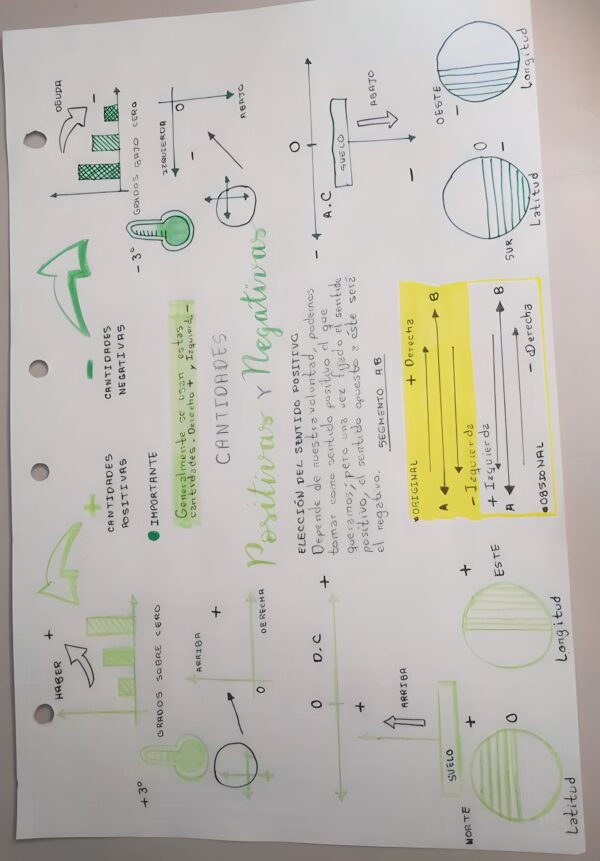 HABER
+
GRADOS SOBRE CERO
+3°
ARRIBA
+
0
DERECHA
0
D.C
+
+
ARRIBA
SUELO
NORTE
+
0
Latitud
+
ESTE
Longitud
+
-
CANTIDADES
POSITIVAS
CANTIDADES
NEGATIVAS
IMPORTANTE
Generalmente se usan estas
cantidades. Derecha + y Izquierda -
CANTIDADES
Positivas Y Negativas
ELECCIÓN DEL SENTIDO POSITIVO
Depende de nuestra voluntad, podemos
tomar como sentido positivo el que
queramos; pero una vez fijado el sentido
positivo, el sentido opuesto a éste será
el negativo. SEGMENTO AB
•ORIGINAL + Derecha
A B
- Izquierda
+ Izquierda
A B
- Derecha
•OBSIONAL
DEUDA
-
GRADOS BAJO CERO
-3°
IZQUIERDA
0
-
ABAJO
0
-
A.C
SUELO
ABAJO
-
SUR
0
-
Latitud
OESTE
-
Longitud